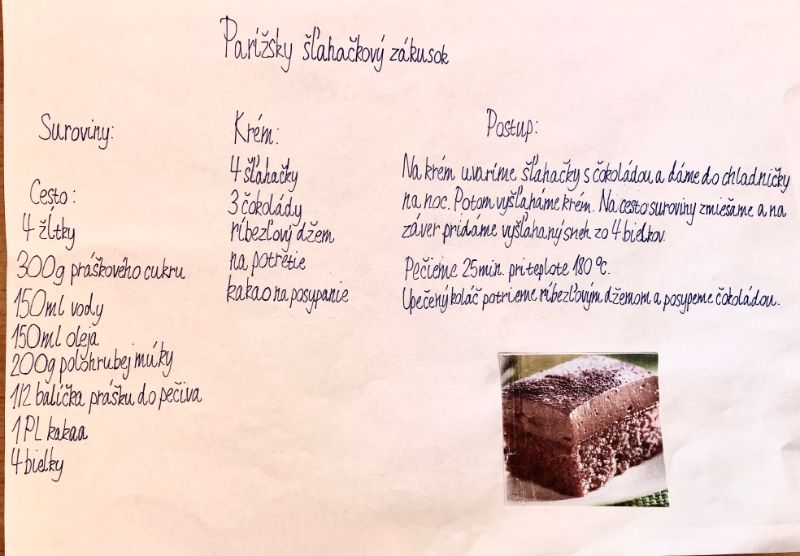 Parížsky šľahačkový zákusok
Suroviny:
Cesto:
4 žĺtky
300g práškového cukru
150ml vody
150ml oleja
200g polohrubej múky
1/2 balíčka prášku do pečiva
1 PL kakaa
4 bielky
Krém:
4 šľahačky
3 čokolády
ríbezľový džem
na potretie
kakao na posypanie
Postup:
Na krém uvaríme šľahačky s čokoládou a dáme do chladničky
na noc. Potom vyšľaháme krém. Na cesto suroviny zmiešame a na
záver pridáme vyšľahaný sneh zo 4 bielkov.
Pečieme 25min. pri teplote 180 °C.
Upečený koláč potrieme ríbezľovým džemom a posypeme čokoládou.